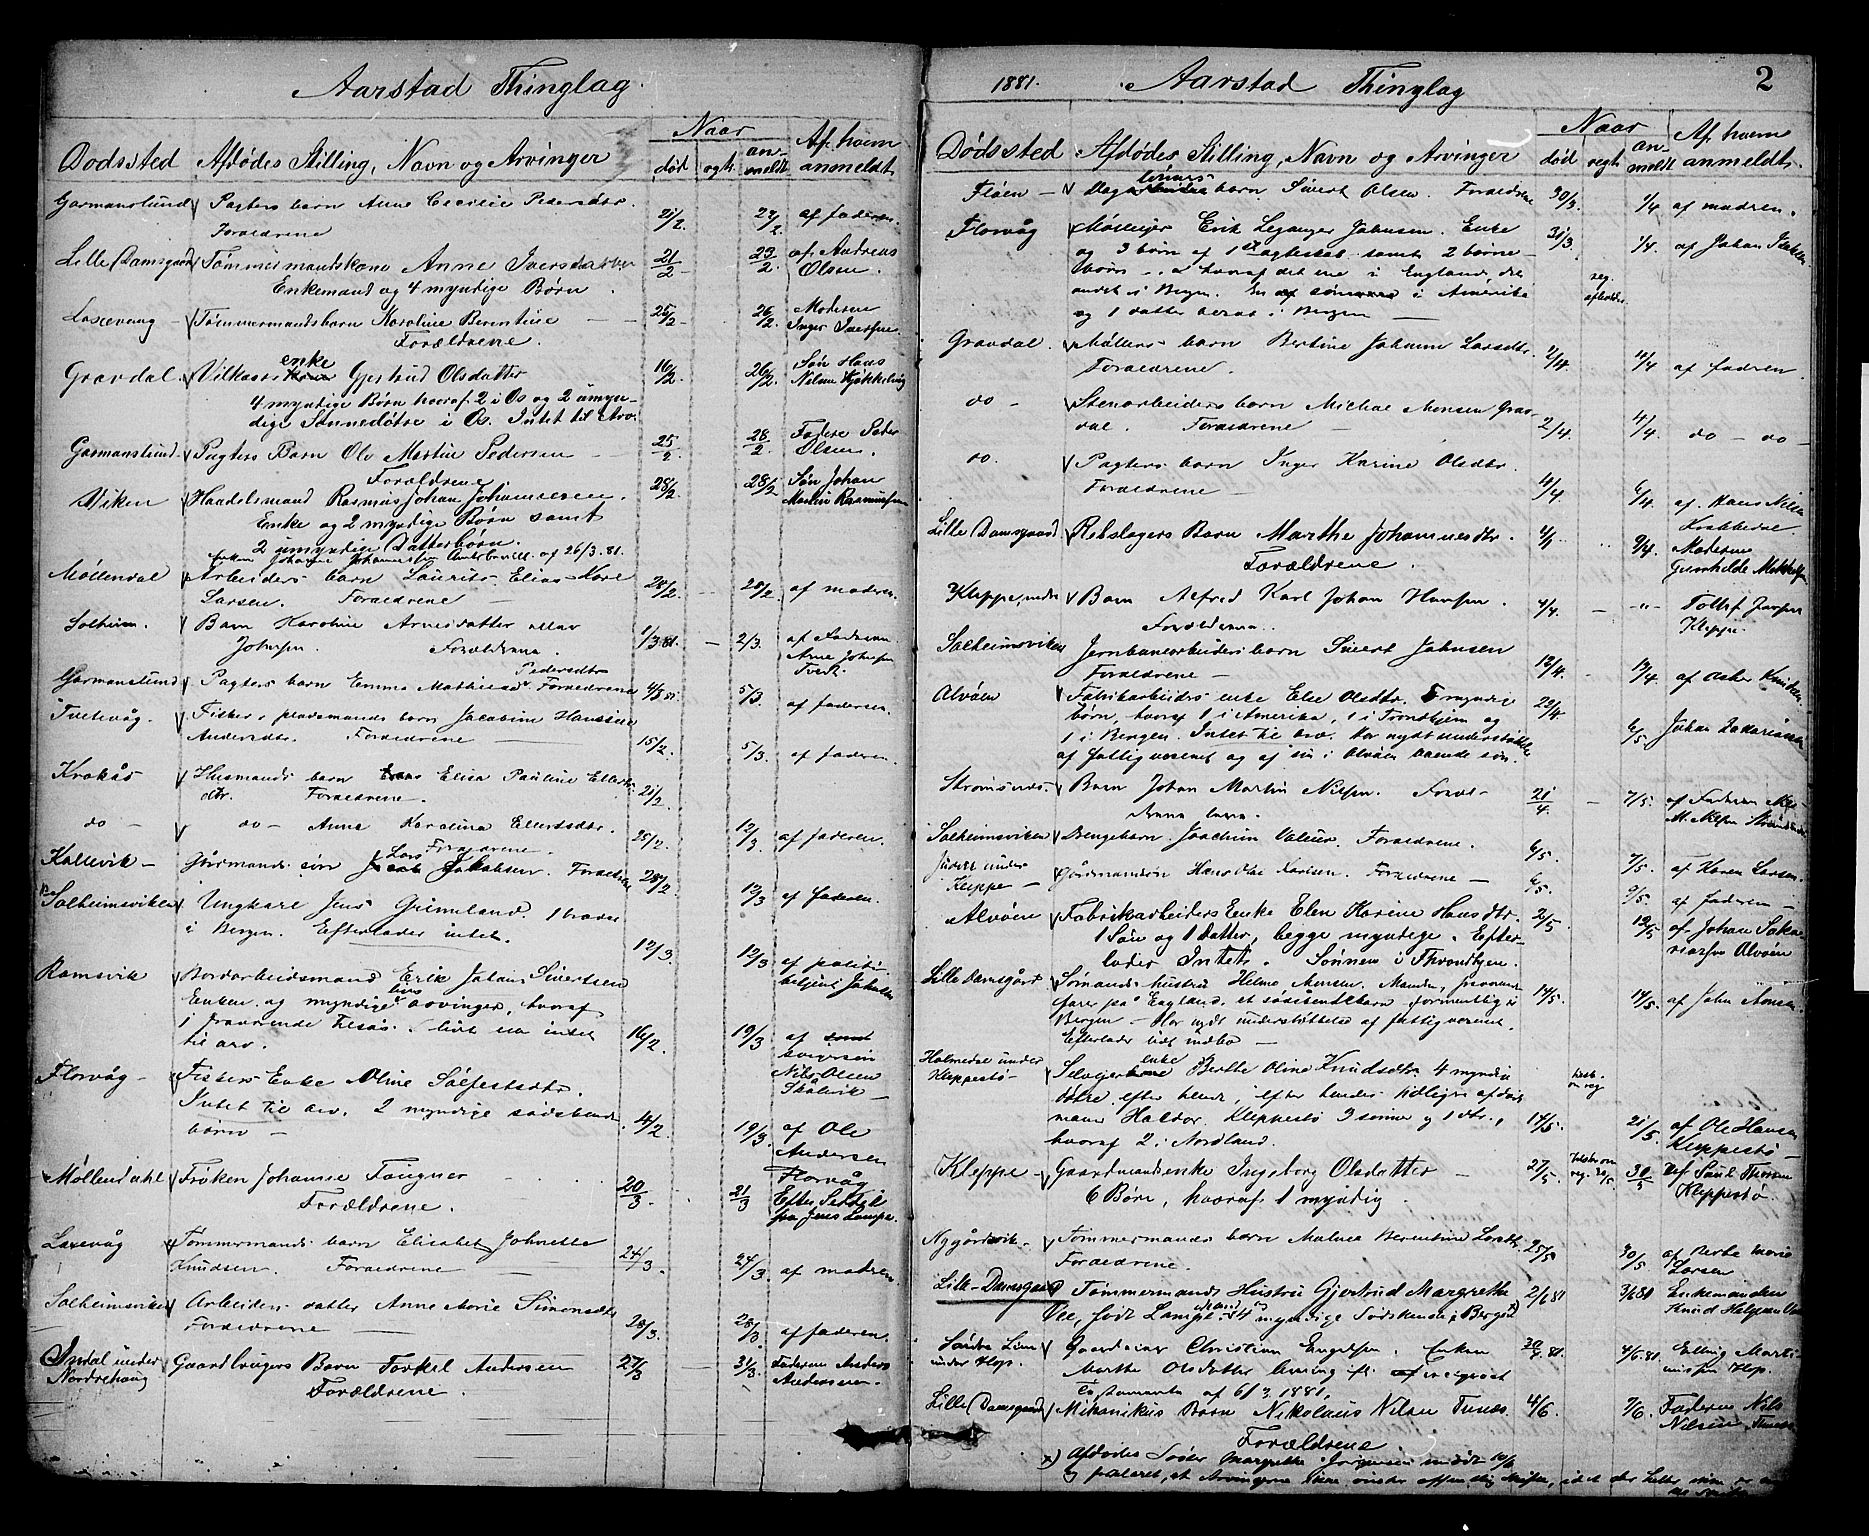 Aarstad Thinglag.
Dødssted Afdødes Stilling, Navn og Arvinger Naar død regtr. anmeldt Af hvem anmeldt.
Garmanslund Pagters barn Anne Cecilie Pedersdtr. 21/2. 22/2 af faderen.
Forældrene
Lille Damsgaard Tømmermandskone Anne Iversdatter 21/2 23/2 af Andreas
Enkemand og 4 myndige Børn. Olsen.
Laxevaag - Tømmermandsbarn Karoline Berentine 25/2 26/2 Moderen
Forældrene. Inger Iversen
Gravdal. enke Gjertrud Olsdatter 16/2. 26/2 Søn Hans
4 myndige Børn hvoraf 2 i Os og 2 umyn- Nilsen
dige Sønnedøtre i Os. Intet til Arv.
Garmanslund. Pagters Barn Ole Martin Pedersen 25/2 28/2. Fader Peder
Forældrene Olsen.
Viken Handelsmand Rasmus Johan Johannessen. 28/2. 28/2 Søn Johan
Enke og 2 myndige Børn samt Martin Rasmussen
2 umyndige Datterbørn.
Enken Johanne Johannesdtr. af 26/3.81.
Møllendal Arbeiders barn Laurits Elias Kore 28/2. 28/2 af moderen.
Larsen. Forældrene
Solheim. Barn Karoline Arnesdatter eller 1/3.81. 2/3. af Faderen
Johnsen. Forældrene. Arne Johnsen
Garmanslund Pagters barn Emma Mathilde Pedersdtr Forældrene 4/3 81 5/3. af faderen.
Tvetevåg. Fisker & pladsmands barn Jacobine Hansine
Andersdtr. Forældrene 15/2. 5/3. af faderen.
Krokås Husmands barn Elisa Pauline Ellerts-
dtr. Forældrene. 21/2.
do - do - Anne Karoline Ellertsdtr. 25/2. 12/3. af faderen.
Forældrene.
Kallevik - Gårdmands søn Lars Jakobsen. Forældrene 28/2. 12/3 af faderen.
Solheimsviken Ungkarl Jens Grimeland. 1 broder
i Bergen. Efterlader intet. 12/3. 12/3 af politi-
betjent Jakobsen
Ramsvik Bordarbeidsmand Erik Johan Sivertsen
Enken og myndige arvinger, hvoraf
1 fraværende tilsøs. intet
til arv. 16/2. 19/3 af
svigersøn
Nils Olsen
Skålvik -
Florvåg - Fiskers Enke Oline Sølfestsdtr.
Intet til arv. 2 myndige sødskende-
børn - 14/2. 19/3. af Ole
Andersen
Florvåg
Møllendahl Frøken Johanne Faugner 20/3 21/3 Efter Seddel
Forældrene. fra Jens Lampe.
Laxevåg Tømmermands barn Elisabet Johnette
Knudsen. Forældrene 24/3. 24/3. af moderen
Solheimsviken Arbeiders datter Anne Marie Simonsdtr
Forældrene 28/3. 28/3 af faderen.
Indal under Gaardbrugers Barn Torkel Andersen 27/3 31/3. Faderen Anders
Nordrehaug Forældrene. Andersen.

1881. Aarstad Thinglag 2
Dødssted Afdødes Stilling, Navn og Arvinger Naar død regtr. anmeldt Af hvem anmeldt.
Fløen - Dag lønners barn Sivert Olsen. Forældrene 30/3. 1/4 af modren.
Florvåg Møllejer Erik Leganger Johnsen. Enke 31/3. 1/4. af Johan
og 3 børn af 1st ægteskab samt 2 børne-
børn - hvoraf det ene i England, det
andet i Bergen. En søn i Amerika reg. afholdes.
og 1 datter i Bergen
Gravdal. Møllers barn Bertine Johanne Larsdtr. 2/4. 4/4 af fadren.
Forældrene.
do - Stenarbeiders barn Michal Monsen Grav-
dal. Forældrene - 2/4. 4/4. do - do -
do. Pagters barn Inger Karine Olsdtr.
Forældrene - 4/4. 6/4. af Hans Nilsen
Lille Damsgaard Rebslagers Barn Marthe Johannesdtr. 4/4 9/4. Moderen
Forældrene. Gunhilde
Kleppe, nedre Barn Alfred Karl Johan Hansen. 4/4. - -"- Tollef Jansen
Forældrene. Kleppe.
Solheimsviken Jernbanearbeiders barn Sivert Johnsen
Forældrene - 12/4. 13/4. af Knudsen
Alvøen Fabrikarbeiders enke Else Olsdtr. myndige
børn, hvoraf 1 i Amerika, 1 i Trondhjem og 22/4.
1 i Bergen. Intet til arv. har nydt understøttelse 6/5. Johan Zakariassen
af fattigvæsenet og af sin i Alvøen boende søn.
Strømsnes. Barn Johan Martin Nilsen. Foræl- 21/4 - 7/5. af Faderen
drene
Solheimsviken Drengebarn Joachim Valeur. Forældrene. 6/5. 7/5. af Karen Larsen.
under Kleppe - Gårdmandsøn Hans Forældrene - 6/5. 9/5. af faderen -
Alvøen Fabrikarbeiders Enke Elen Karine Hansdtr. 2/5. 12/5 af Johan Saka-
1 Søn og 1 Datter, begge myndige. Efter- riassen Alvøen
lader Intet. Sønnen i Throndhjem.
Lille Damsgård Sømands hustru Helene Monsen. Manden, fraværende
farer på England, et sødskendebarn formentlig i 14/5. 14/5. af John Monsen
Bergen - Har nydt understøttelse af fattigvæsenet.
Efterlader lidt indbo -
Holmedal under Kleppestø - Selveierenke Berthe Oline Knudsdtr. 4 myndige
døtre efter hende, efter hendes tidligere afdøde
mand Haldor Kleppestø 3 sønner og 1 dtr., 14/5. 21/5. af Ole Hansen
hvoraf 2 i Nordland. Kleppestø -
Kleppe - Gaardmandsenke Ingeborg Olsdatter - 27/5. 30/5 af
6 Børn, hvoraf 1 myndig. Kleppestø
Nygårdsvik. Tømmermands barn Malene Berentine Larsdtr. 25/5 30/5. af Marie
Forældrene. Larsen
Lille-Damsgaard Tømmermands Hustru Gjertrud Margrethe 2/6 81 3/6 81 Enkemanden
Vee, født Lampe. Mand & 4 myndige Sødskende i Bergen x) Knud Helgesen
Søndre Lien under Hop. Gaardeier Christian Engelsen. Enken 4/6.81. Elling Marti-
Marthe Olsdatter nussen Hop.
Testamente af 6/3.1881.
Lille Damsgaard Mekanikus Barn Nikolaus Nilsen Tunes. 4/6. 7/6. Faderen Nils
Forældrene Nilsen Tunes
x) Afdødes Søster Margrethe Jørgensen mødt 10/6
og paaberet, at Arvingerne ikke ønsker offentlig Skifte, idet der